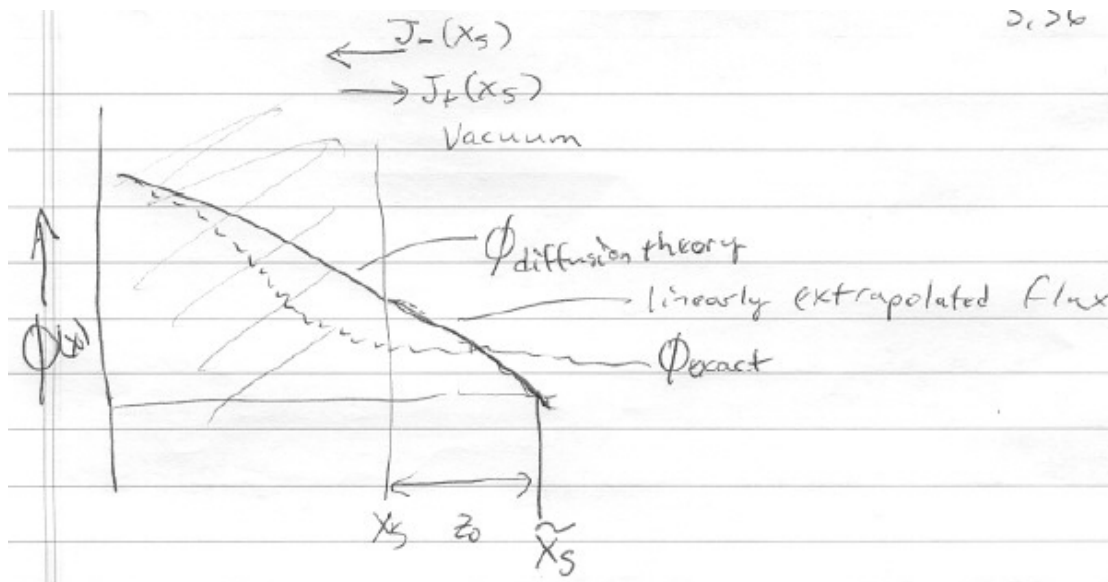 5.26
J-(xs)
J+(xs)
Vacuum
ϕdiffusion theory
linearly extrapolated flux
ϕ(x)
ϕexact
xs
z0
x̃s